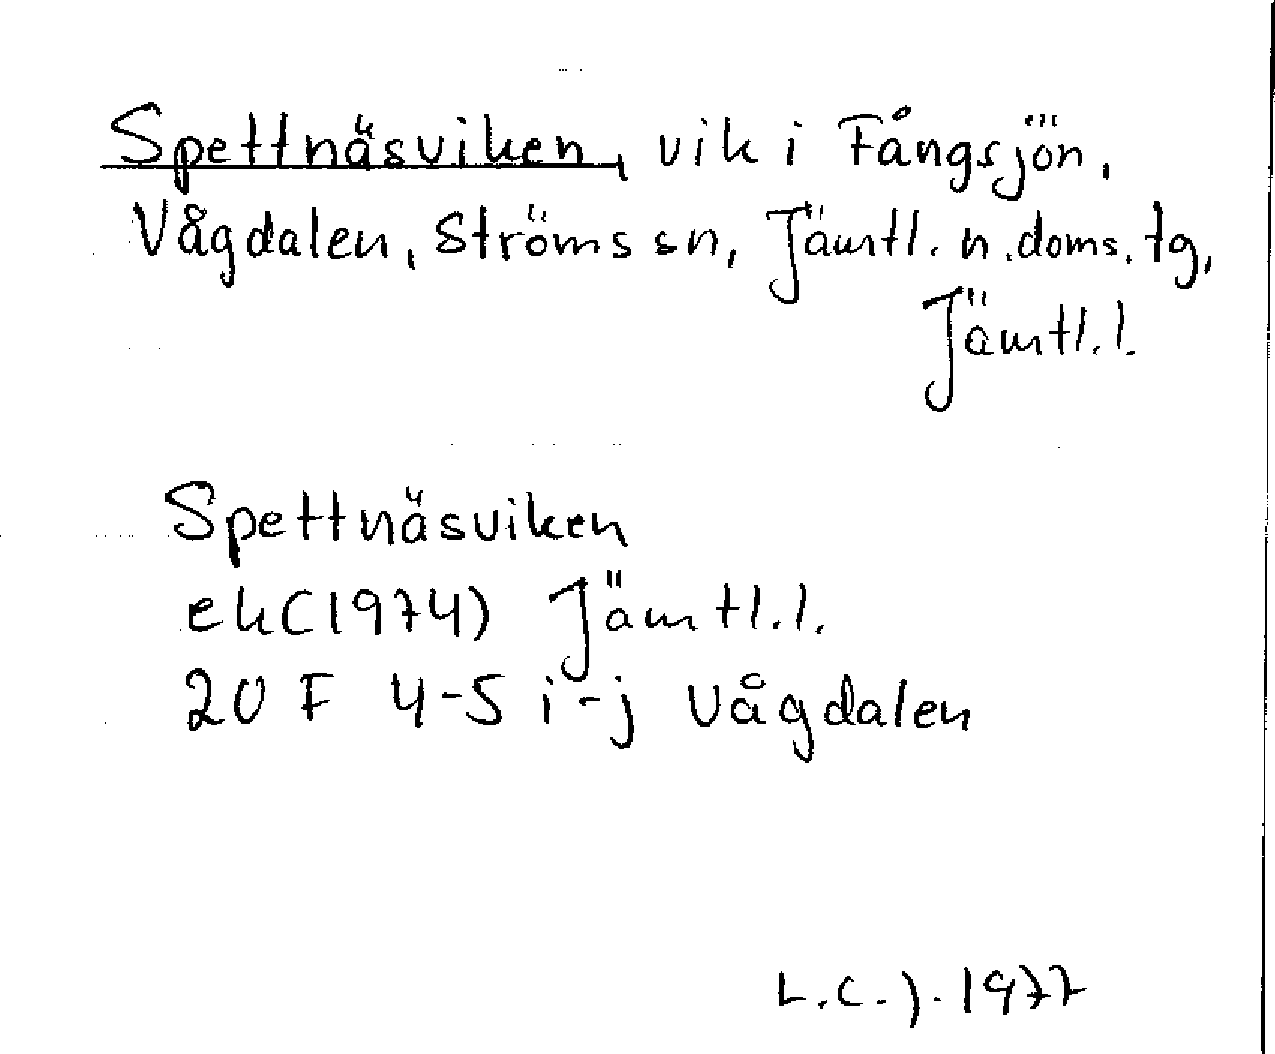 Spettnäsviken, vik i Fångsjön,
Vågdalen, Ströms sn, Jämtl. n. doms. tg,
Jämtl. l.
Spettnäsviken
ek (1974) Jämtl. l.
20 F 4-5 i-j Vågdalen
L.C.J. 1977